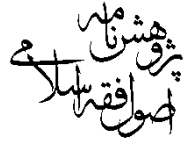 پژوهشنامه
اصول فقه اسلامی